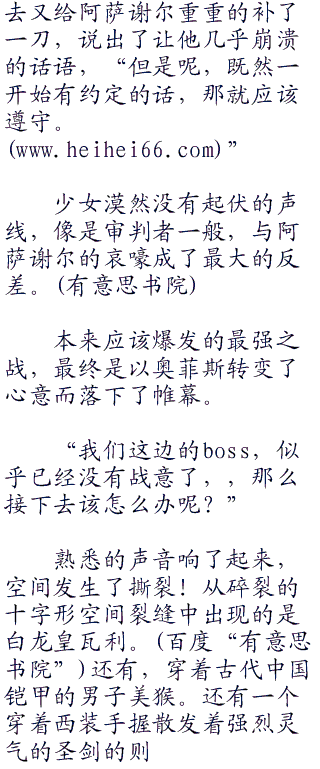 去又给阿萨谢尔重重的补了
一刀，说出了让他几乎崩溃
的话语，“但是呢，既然一
开始有约定的话，那就应该
遵守。
(www.heihei66.com)”
少女漠然没有起伏的声
线，像是审判者一般，与阿
萨谢尔的哀嚎成了最大的反
差。(有意思书院)
本来应该爆发的最强之
战，最终是以奥菲斯转变了
心意而落下了帷幕。
“我们这边的boss，似
乎已经没有战意了，，那么
接下去该怎么办呢？”
熟悉的声音响了起来，
空间发生了撕裂！从碎裂的
十字形空间裂缝中出现的是
白龙皇瓦利。(百度“有意思
书院”)还有，穿着古代中国
铠甲的男子美猴。还有一个
穿着西装手握散发着强烈灵
气的圣剑的则